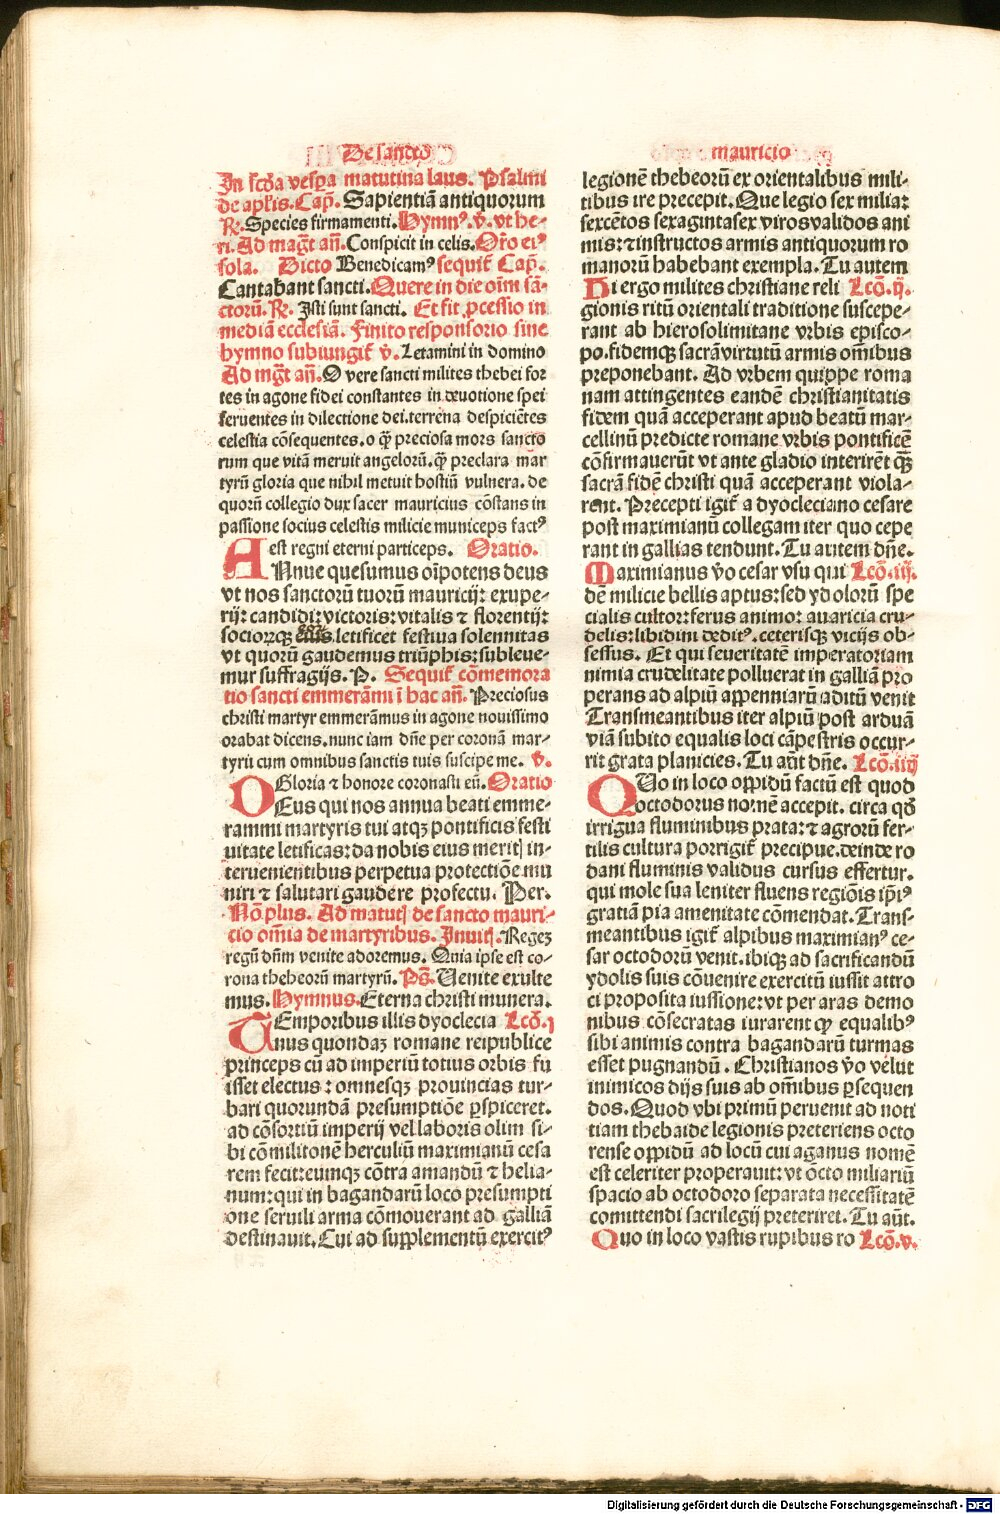 De sancto
mauricio
In scďa vespa matutina laus. Psalmi
de aplis. Cap̄. Sapientiā antiquorum
℟. Species firmamenti. Hymnꝰ. v̄. vt he-
ri. Ad mag̃t an̄. Conspicit in celis. Or̄o eiꝰ
sola. Dicto Benedicamꝰ sequit̄ Cap̄.
Cantabant sancti. Quere in die oīm sā-
ctorū. ℟. Isti sunt sancti. Et fit ꝓcessio in
mediā ecclesiā. Finito responsorio sine
hymno subiungit̄ v̄. Letamini in domino
Ad mg̃t an̄. O vere sancti milites thebei for
tes in agone fidei constantes in deuotione spei
feruentes in dilectione dei. terrena despiciētes
celestia cōsequentes. o q̄ꝫ preciosa mors sancto
rum que vitā meruit angelorū. q̄ꝫ preclara mar
tyrū gloria que nihil metuit hostiū vulnera. de
quorū collegio dux sacer mauricius cōstans in
passione socius celestis milicie municeps factꝰ
est regni eterni particeps. Oratio.
ANnue quesumus oīpotens deus
vt nos sanctorū tuorū mauricij: exupe-
rij: candidi: victoris: vitalis ⁊ florentij:
sociorꝫqꝫ eius. letificet festiua solennitas
vt quorū gaudemus triūphis: subleue-
mur suffragijs. P. Sequit̄ cōmemora
tio sancti emmerāmi ī hac an̄. Preciosus
christi martyr emmerāmus in agone nouissimo
orabat dicens. nunc iam dn̄e per coronā mar-
tyrii cum omnibus sanctis tuis suscipe me. v̄.
Gloria ⁊ honore coronasti eū. Oratio
DEus qui nos annua beati emme-
rammi martyris tui atqꝫ pontificis festi
uitate letificas: da nobis eius meritj in-
teruenientibus perpetua protectiōe mu
niri ⁊ salutari gaudere profectu. Per.
Nō plus. Ad matutj de sancto mauri-
cio om̄ia de martyribus. Inuitj. Regeꝫ
regū dn̄m venite adoremus. Quia ipse est co-
rona thebeorū martyrū. Ps̄. Uenite exulte
mus. Hymnus. Eterna christi munera.
TEmporibus illis dyoclecia Lcō. j
nus quondaꝫ romane reipublice
princeps cū ad imperiū totius orbis fu
isset electus: omnesqꝫ prouincias tur-
bari quorundā presumptiōe ꝑspiceret.
ad cōsortiū imperij vel laboris olim si-
bi cōmilitonē herculiū maximianū cesa
rem fecit: eumqꝫ cōtra amandū ⁊ helia-
num: qui in bagandarū loco presumpti
one seruili arma cōmouerant ad galliā
destinauit. Cui ad supplementū exercitꝰ
legionē thebeorū ex orientalibus mili-
tibus ire precepit. Que legio sex milia:
sexcētos sexagintasex viros validos ani
mis: ⁊ instructos armis antiquorum ro
manorū habebant exempla. Tu autem
Hi ergo milites christiane reli Lcō. ij.
gionis ritū orientali traditione suscepe-
rant ab hierosolimitane vrbis episco-
po. fidemqꝫ sacrā virtutū armis om̄ibus
preponebant. Ad vrbem quippe roma
nam attingentes eandē christianitatis
fidem quā acceperant apud beatū mar-
cellinū predicte romane vrbis pontificē
cōfirmauerūt vt ante gladio interirēt q̄ꝫ
sacrā fidē christi quā acceperant viola-
rent. Precepti igit̄ a dyocleciano cesare
post maximianū collegam iter quo cepe
rant in gallias tendunt. Tu autem dn̄e.
Maximianus v̄o cesar vsu qui Lcō. iij.
dē milicie bellis aptus: sed ydolorū spe
cialis cultor: ferus animo: auaricia cru-
delis: libidini deditꝰ. ceterisqꝫ vicijs ob-
sessus. Et qui seueritatē imperatoriam
nimia crudelitate polluerat in galliā pro
perans ad alpiū appenniarū aditū venit
Transmeantibus iter alpiū post arduā
viā subito equalis loci cāpestris occur-
rit grata planicies. Tu aūt dn̄e. Lcō. iiij
QUo in loco oppidū factū est quod
octodorus nomē accepit. circa qď
irrigua fluminibus prata: ⁊ agrorū fer-
tilis cultura porrigit̄ precipue. deinde ro
dani fluminis validus cursus effertur.
qui mole sua leniter fluens regiōis ip̄iꝰ
gratiā pia amenitate cōmendat. Trans-
meantibus igit̄ alpibus maximianꝰ ce-
sar octodorū venit. ibiqꝫ ad sacrificandū
ydolis suis cōuenire exercitū iussit attro
ci proposita iussione: vt per aras demo
nibus cōsecratas iurarent ꝙ equalibꝰ
sibi animis contra bagandarū turmas
esset pugnandū. Christianos v̄o velut
inimicos dijs suis ab om̄ibus ꝑsequen
dos. Quod vbi primū peruenit ad noti
tiam thebaide legionis preteriens octo
rense oppidū ad locū cui aganus nomē
est celeriter properauit: vt octo miliariū
spacio ab octodoro separata necessitatē
comittendi sacrilegij preteriret. Tu aūt.
Quo in loco vastis rupibus ro Lcō. v.
Digitalisierung gefördert durch die Deutsche Forschungsgemeinschaft - DFG